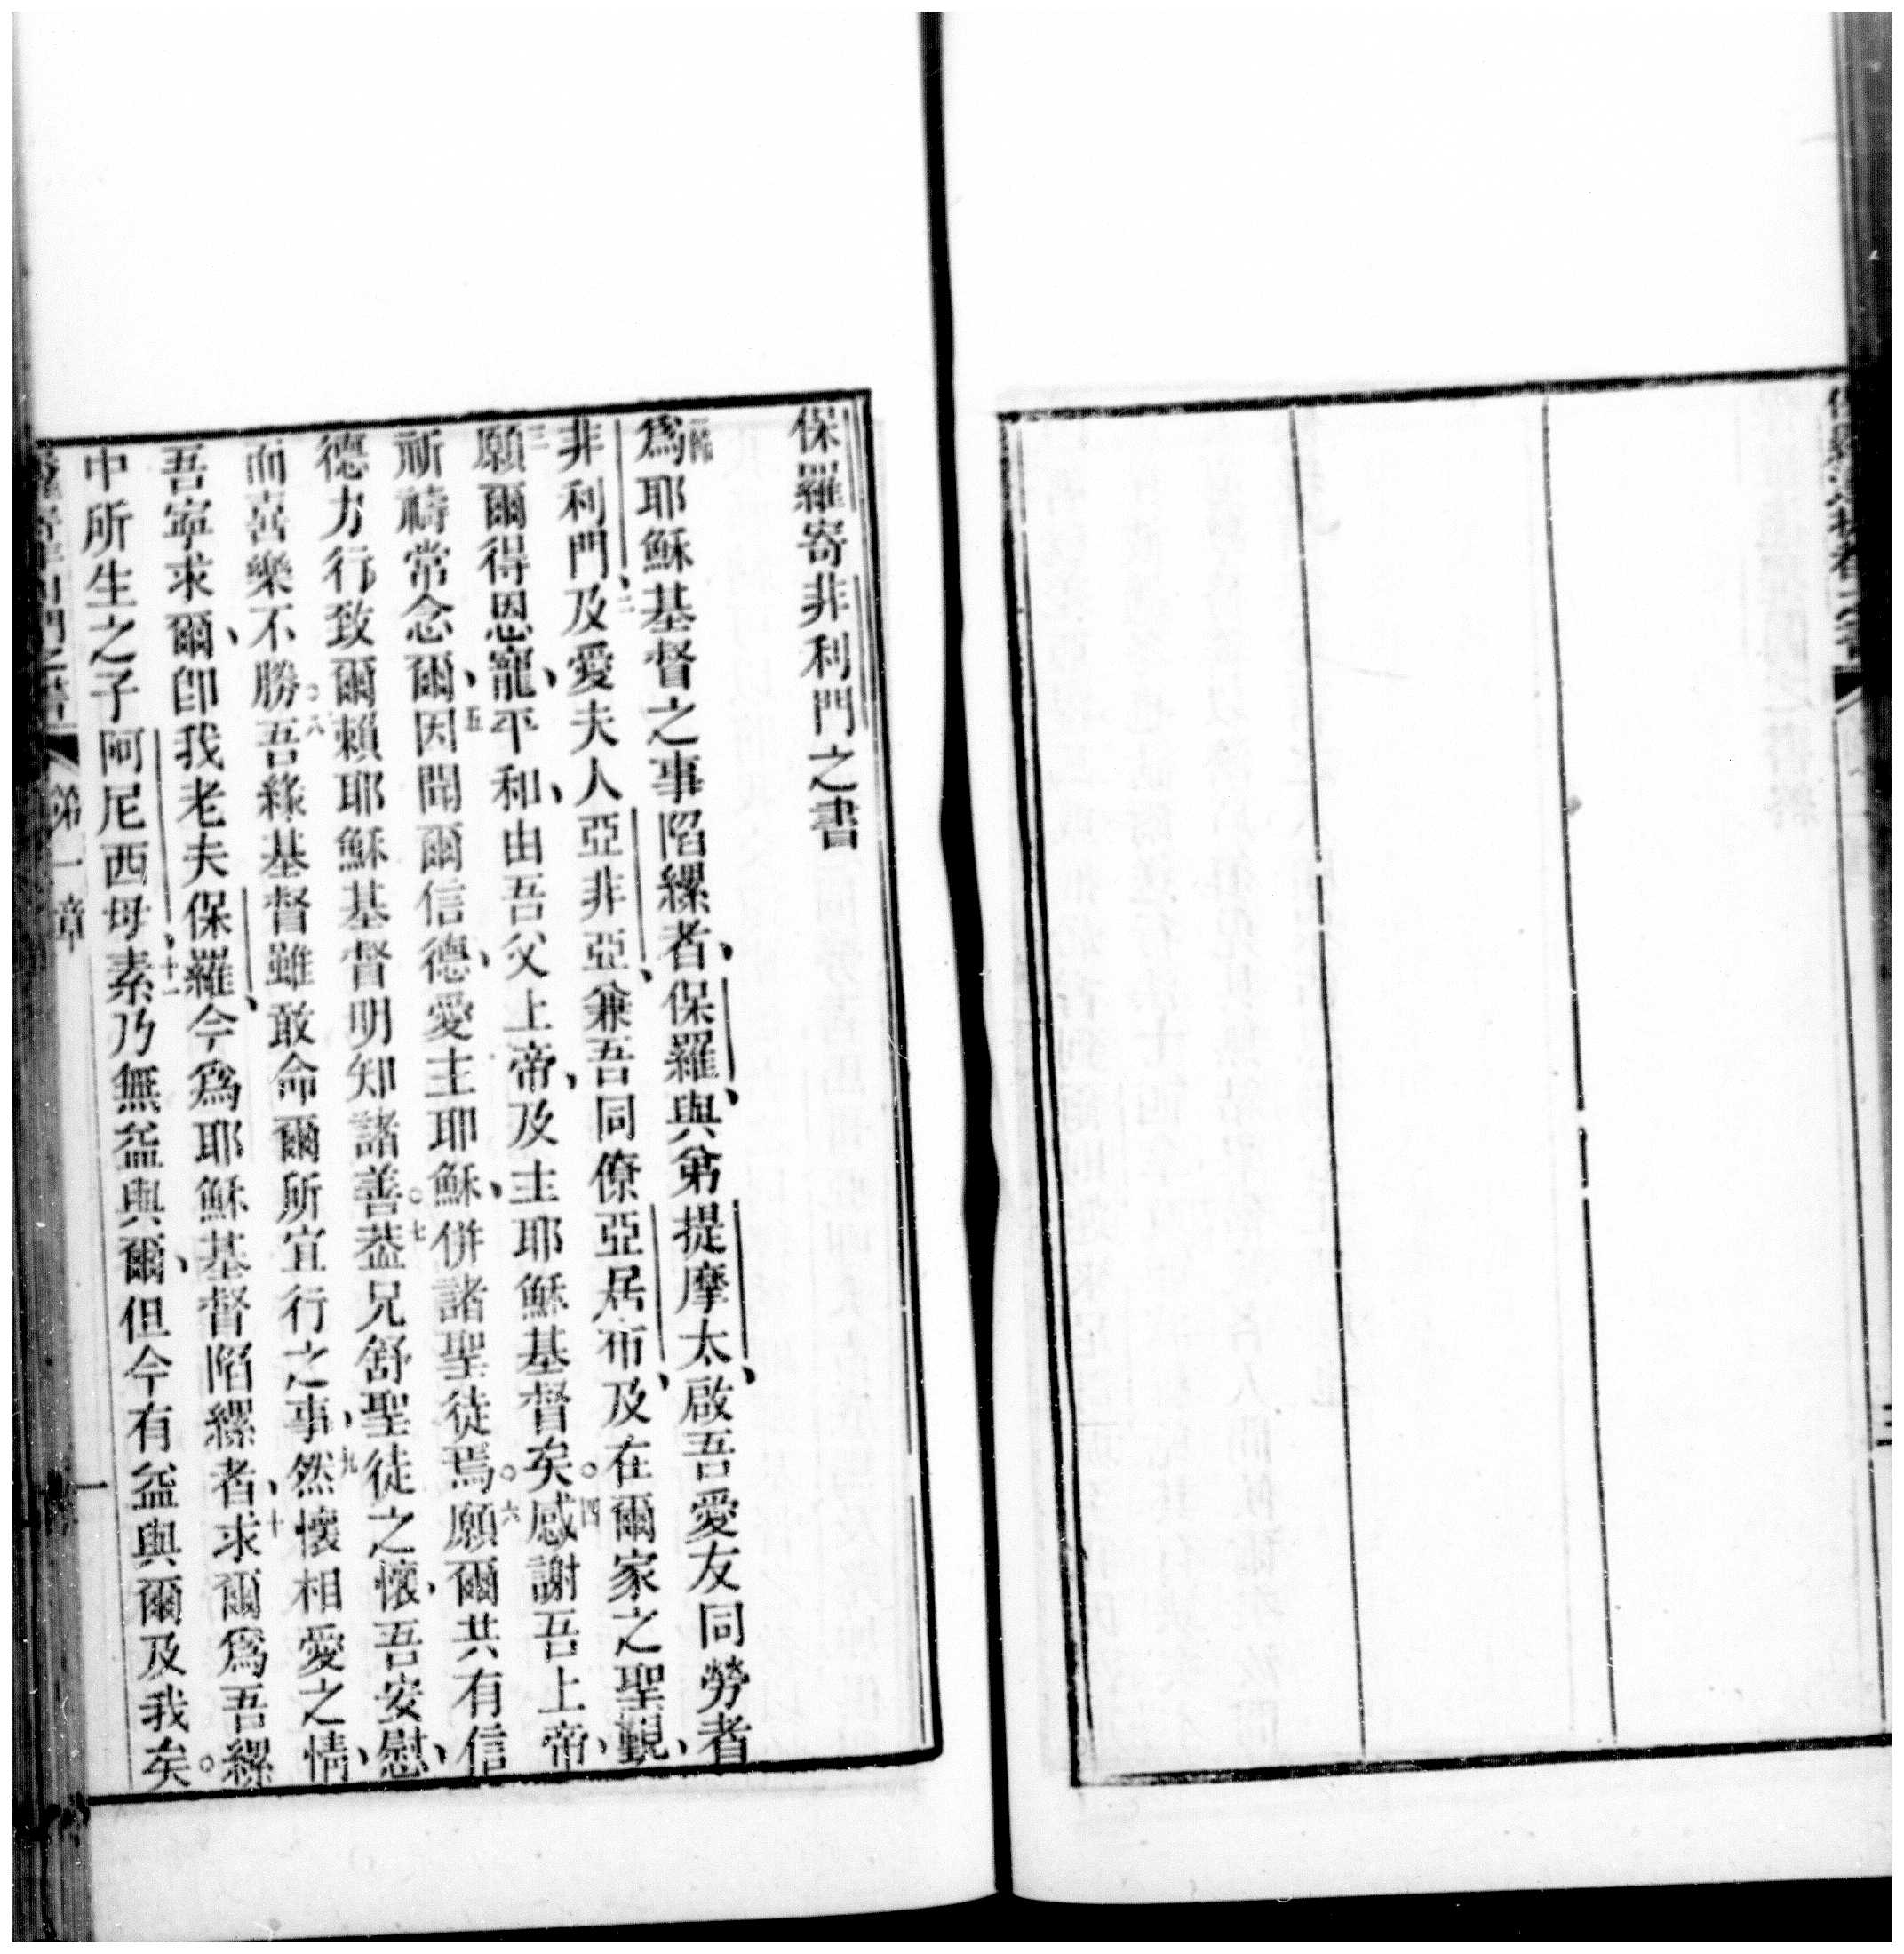 保羅寄非利門之書
一節爲耶穌基督之事陷縲者、保羅、與弟提摩太、啟吾愛友同勞者
非利門、二及愛夫人亞非亞、兼吾同僚亞居布、及在爾家之聖覲、
三願爾得恩寵、平和、由吾父上帝、及主耶穌基督矣。四感謝吾上帝、
祈禱常念爾、五因聞爾信德、愛主耶穌、併諸聖徒焉。六願爾共有信
德力行致爾賴耶穌基督明知諸善。七葢兄舒聖徒之懷、吾安慰、
而喜樂不勝。六吾緣基督雖敢命爾所宜行之事、九然懷相愛之情、
吾寧求爾、卽我老夫保羅、今爲耶穌基督陷縲者、十求爾爲吾縲
中所生之子阿尼西母、十一素乃無益與爾、但今有益與爾及我矣。
門之書 第一章 一